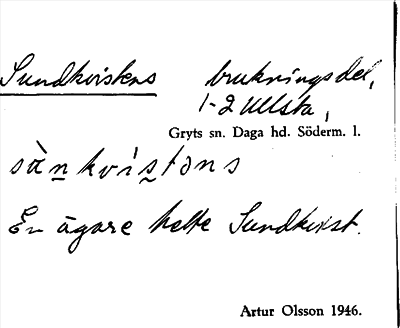 Sundkvistens brukningsdel,
1-2 Ullsta,
Gryts sn. Daga hd. Söderm. l.
sàn̲kvis̲təns
En ägare hette Sundkvist.
Artur Olsson 1946.